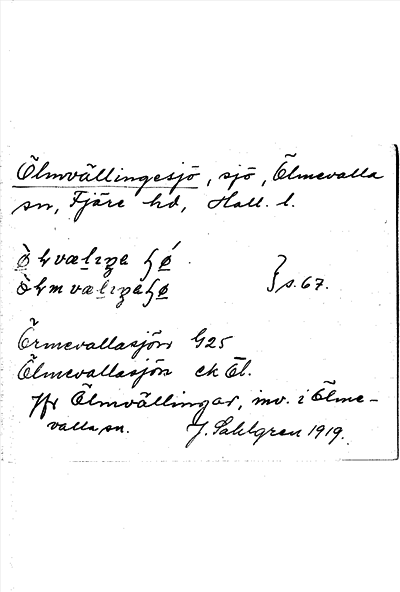 Ölmvällingesjö, sjö, Ölmevalla
sn, Fjäre hd, Hall. l.
} s. 67.
Örmevallasjön G25
Ölmevallasjön ek Öl.
Jfr Ölmvällingar, inv. i Ölme-
valla sn. J. Sahlgren 1919.